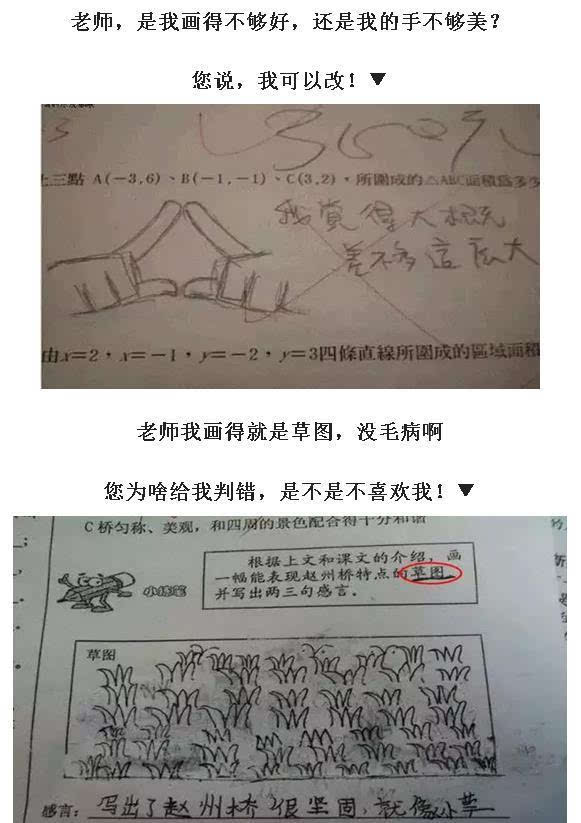 老师，是我画得不够好，还是我的手不够美？
您说，我可以改！▼
上三點 A(-3,6)、B(-1,-1)、C(3,2)，所圍成的△ABC面積為多少
我覺得大概
差不多這麼大
由x=2，x=-1，y=-2，y=3四條直線所圍成的區域面積
老师我画得就是草图，没毛病啊
您为啥给我判错，是不是不喜欢我！▼
C 桥匀称、美观，和四周的景色配合得十分和谐
根据上文和课文的介绍，画
一幅能表现赵州桥特点的草图，
并写出两三句感言。
小练笔
草图
感言：写出了赵州桥很坚固，就像小草